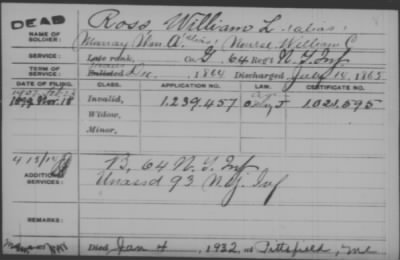 DEAD
Ross William L. (alias)
NAME OF SOLDIER:
Murray Wm. A. (alias) Nourse William C
SERVICE: Late rank, Co. G. 64 Reg't N. Y. Inf
TERM OF SERVICE: Enlisted Dec. 1864 Discharged July 14, 1865
DATE OF FILING. CLASS. APPLICATION NO. LAW. CERTIFICATE NO.
Invalid, 1.239.457 1.021.595
Widow,
Minor,
B, 64 N. Y. Inf
ADDITIONAL SERVICES: Unassd 93 N. Y. Inf
REMARKS:
Died Jan 4, 1932, at Pittsfield,